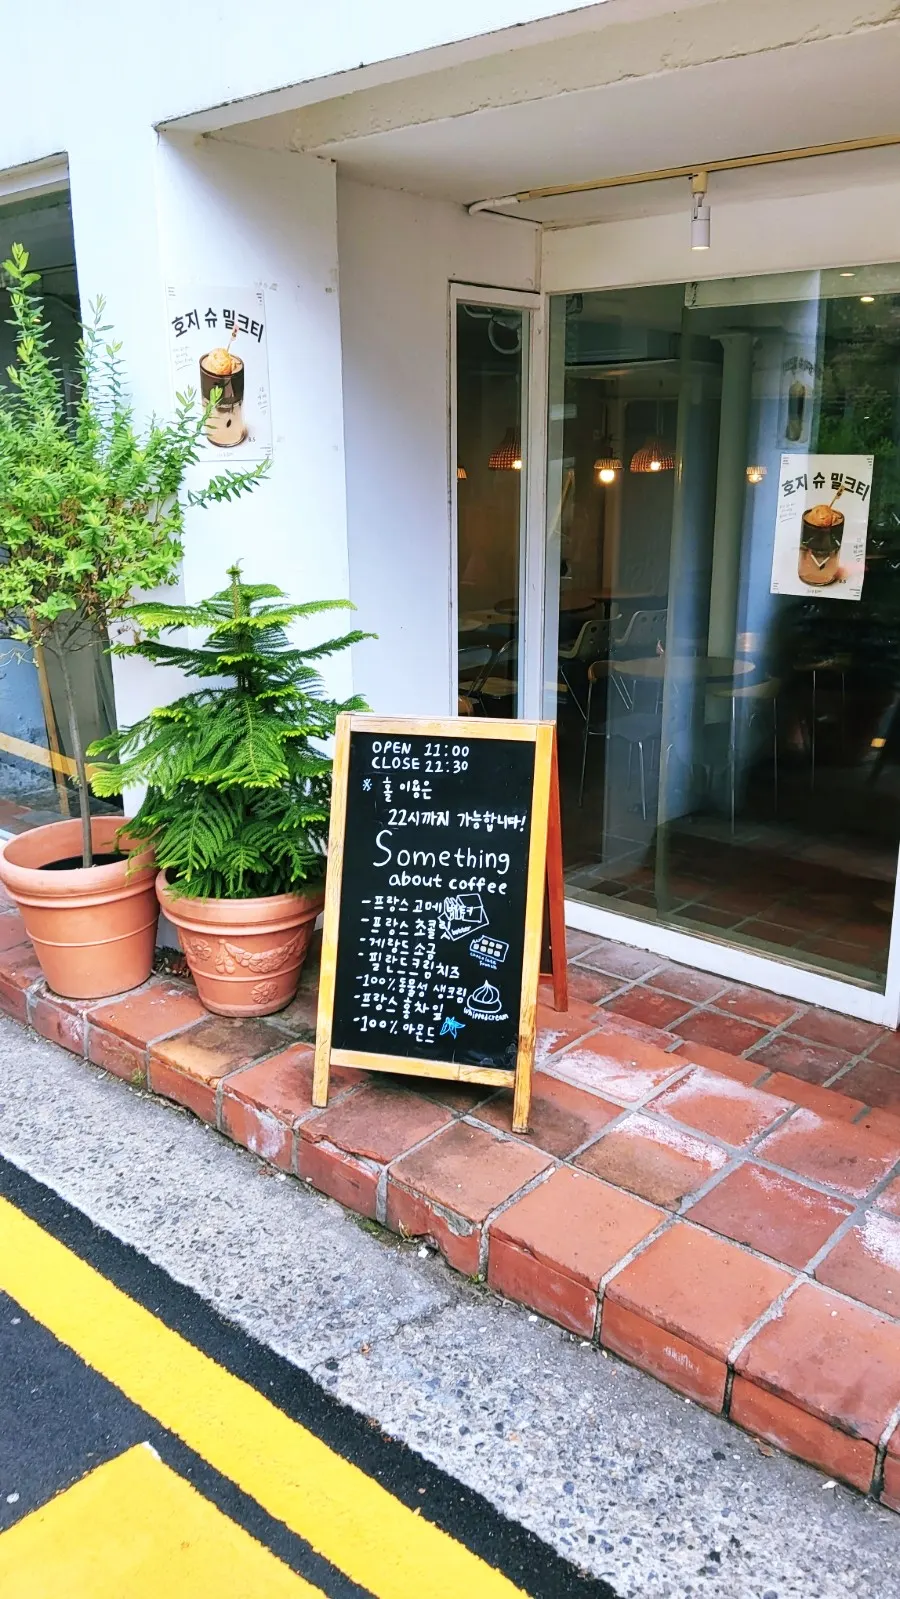 호지 슈 밀크티
6.5
호지 슈 밀크티
6.5
OPEN 11:00
CLOSE 22:30
※ 홀 이용은
22시까지 가능합니다!
Something
about coffee
-프랑스 고메
butter
-프랑스 초콜릿
-게랑드 소금
-필란드크림치즈
-100% 동물성 생크림
-프랑스 홍차잎
whippedcream
-100% 아몬드